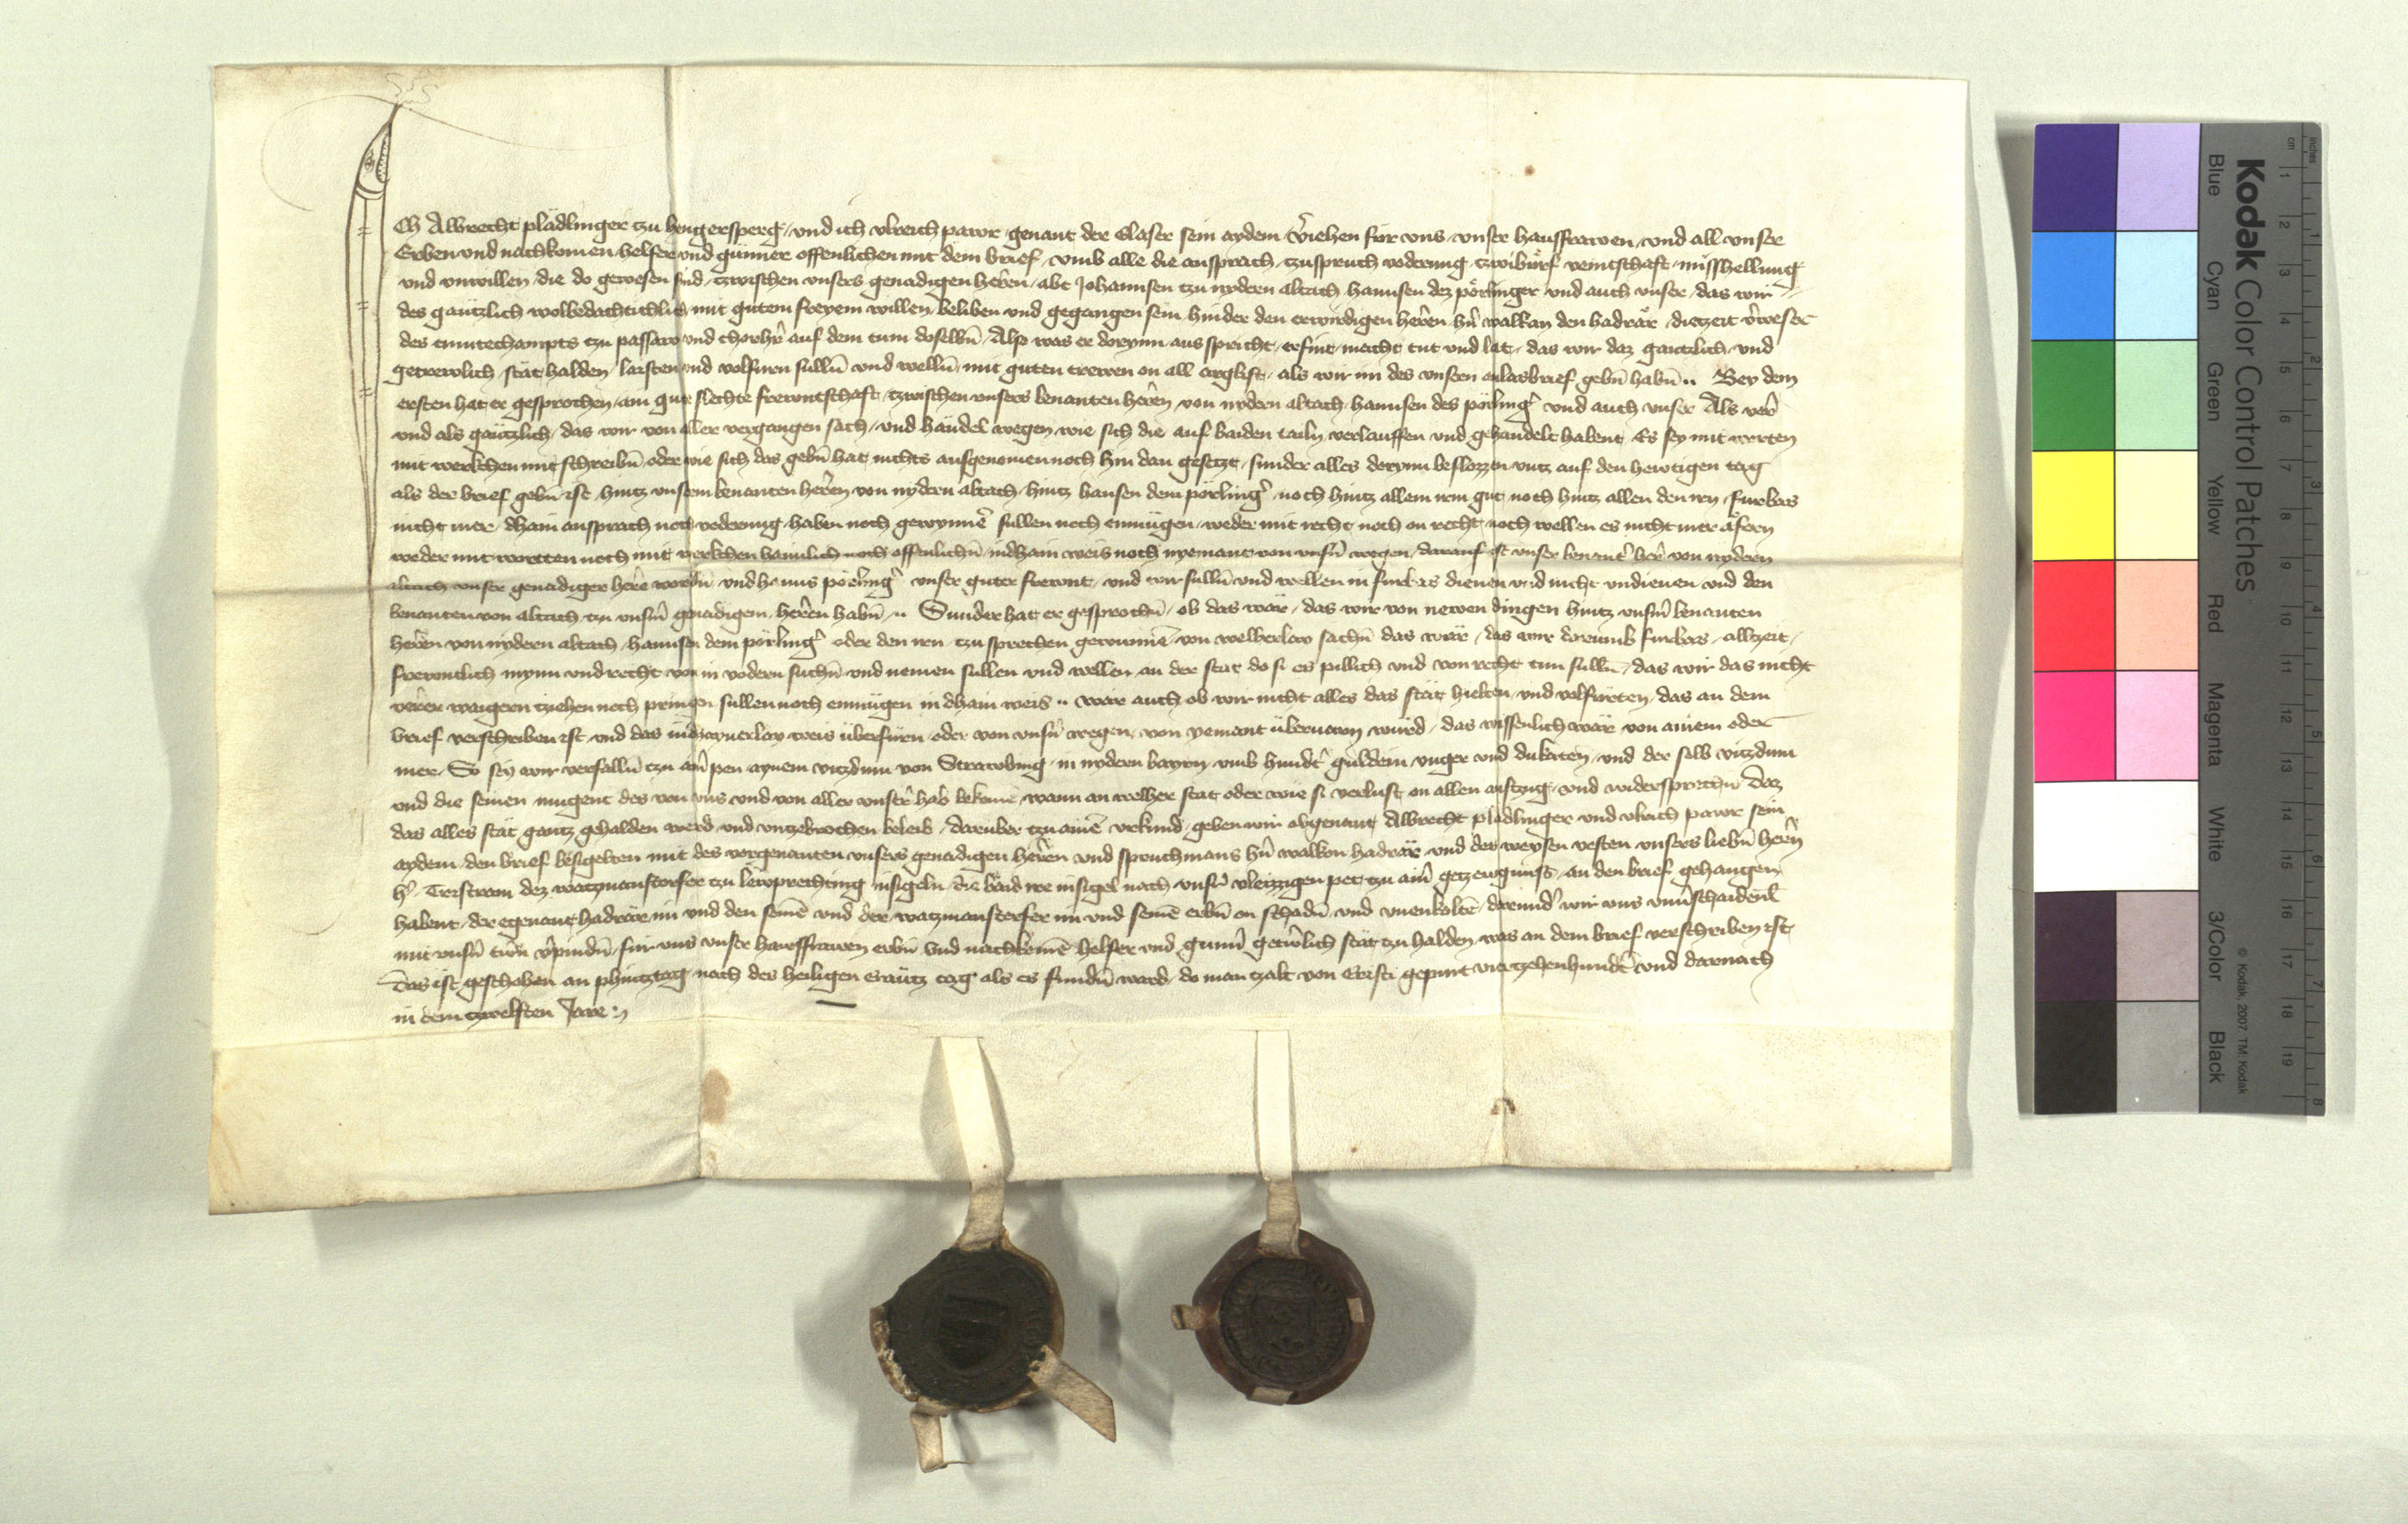 Ich Albrecht plädlinger tzu hengersperg und ich ulreich pawr genant der Glaser sein aydem v̂iehen für uns unser hausfrawen und all unser
Erben und nachkomen helfer und günner offenlichen mit dem brief umb alle die ansprach tzuspruch voderung tzwiburf veintschaft misshellung
und unwillen die do gewesen sind tzwischen unsers genadigen herren abt Johannsen tzu nydern altach hannsen dez pörlinger und auch unser das wir
des gäntzlich wolbedachtichlich mit gutem freyem willen beliben und gegangen sein hinder den erwirdigen herren hn̄ walkan den hadrär dietzeit v̂weser
des tumtechampts tzu passaw und chorhr̄ auf dem tum doselbn̄ Also was er dorynn aus spricht erfint macht tut und lat das wir daz gantzlich und
getrewlich stät halden laisten und volfurn sulln̄ und welln̄ mit guten trewen on all arglist als wir im des unsern anlasbrief gebn̄ habn̄ Bey dem
ersten hat er gesprochen ain gut slechte frewntschaft tzwischen unsers benanten herren von nydern altach hannsen des pörling̉ und auch unser Als verr
und als gäntzlich das wir von aller vergangen sach und händel wegen wie sich die auf baiden tailn verlauffen und gehandelt habent Es sey mit worten
mit werkchen mit schreibn̄ oder wie sich das gebn̄ hat nichts ausgenomen noch hin dan gesetzt sunder alles dorynn beslozzen untz auf den hewtigen tag
als der brief gebn̄ ist hintz unserm benanten herren von nydern altach hintz hansen dem pörling̉ noch hintz allem irm gut noch hintz allen den irn furbas
nicht mer dhain ansprach noch voderung haben noch gewynnē sullen noch enmügen weder mit recht noch on recht noch wellen es nicht mer äfern
weder mit wortten noch mit werkchen haimlich noch offenlichn̄ in dhain weis noch nyemant von unsn̄ wegen darauf ist unser benant̉ herr von nydern
altach unser genadiger herre wordn̄ und hanns pörling̉ unser guter frewnt und wir sulln̄ und wellen in furbas dienen und nicht undienen und den
benanten von altach tzu unsm̄ genadigem herren habn̄ Sunder hat er gesprochn̄ ob das wär das wir von newen dingen hintz unsm̄ benanten
herren von nydern altach hannsen dem pörling̉ oder den irn tzu sprechen gewunnē von welherlay sachn̄ das wär das wir darumb furbas alltzeit
frewntlich mynn und recht von in vodern suchn̄ und nemen sullen und wellen an der stat do si es pillich und von recht tun sulln̄ das wir das nicht
verrer waigern tziehen noch pringen sullen noch enmügen in dhain weis wär auch ob wir nicht alles das stät hielten und volfürten das an dem
brief verschriben ist und das in dhaynerlay weis überfürn oder von unsn̄ wegen von yemant übervarn würd das wissenlich wär von ainem oder
mer So sey wir verfalln̄ tzu ain̄ pen aynem vitzdum von Strawbing in nydern bayrn umb hundt̉ guldein unger und dukaten und der selb vitzdum
und die seinen mugent des von uns und von aller unsr̄ hab bekomē wann an welher stat oder wie si verlust on allen austzug und widersprechn̄ Daz
das alles stät gantz gehalden werd und untzebrochen beleib darüber tzu ainē urkund geben wir obgenant Albrecht plädlinger und ulreich pawr sein
aydem den brief besigelten mit des vorgenanten unsers genadigen herren und spruchmans hn̄ walkon hadrär und des weysen vesten unsers liebn̄ herrn
h̉ Gerstram dez watzmanstorfer tzu lewprechting insigeln die baid ire insigel nach unsr̄ vleizzigen pet tzu ain̄ getzewgnuss an den brief gehangen
habent der egenant hadrär im und den seinē und der watzmanstorfer im und seinē erbn̄ on schadn̄ und unenkoltē darund̉ wir uns unūschaidenl̄
mit unsn̄ trūn v̂pindn̄ für uns unser hawsfrawen erbn̄ und nachkomē helfer und gunn̄ getr̄lich stät tzu halden was an dem brief verschriben ist
Das ist geschehen an phintztag nach des heiligen Kräutz tag als es fundn̄ ward do man tzalt von Christi gepurt viertzehenhundt̉ und darnach
in dem tzwelften Jare
Kodak Color Control Patches
Blue Cyan Green Yellow Red Magenta White 3/Color Black
© Kodak, 2007 TM: Kodak
cm 1 2 3 4 5 6 7 8 9 10 11 12 13 14 15 16 17 18 19
inches 1 2 3 4 5 6 7 8